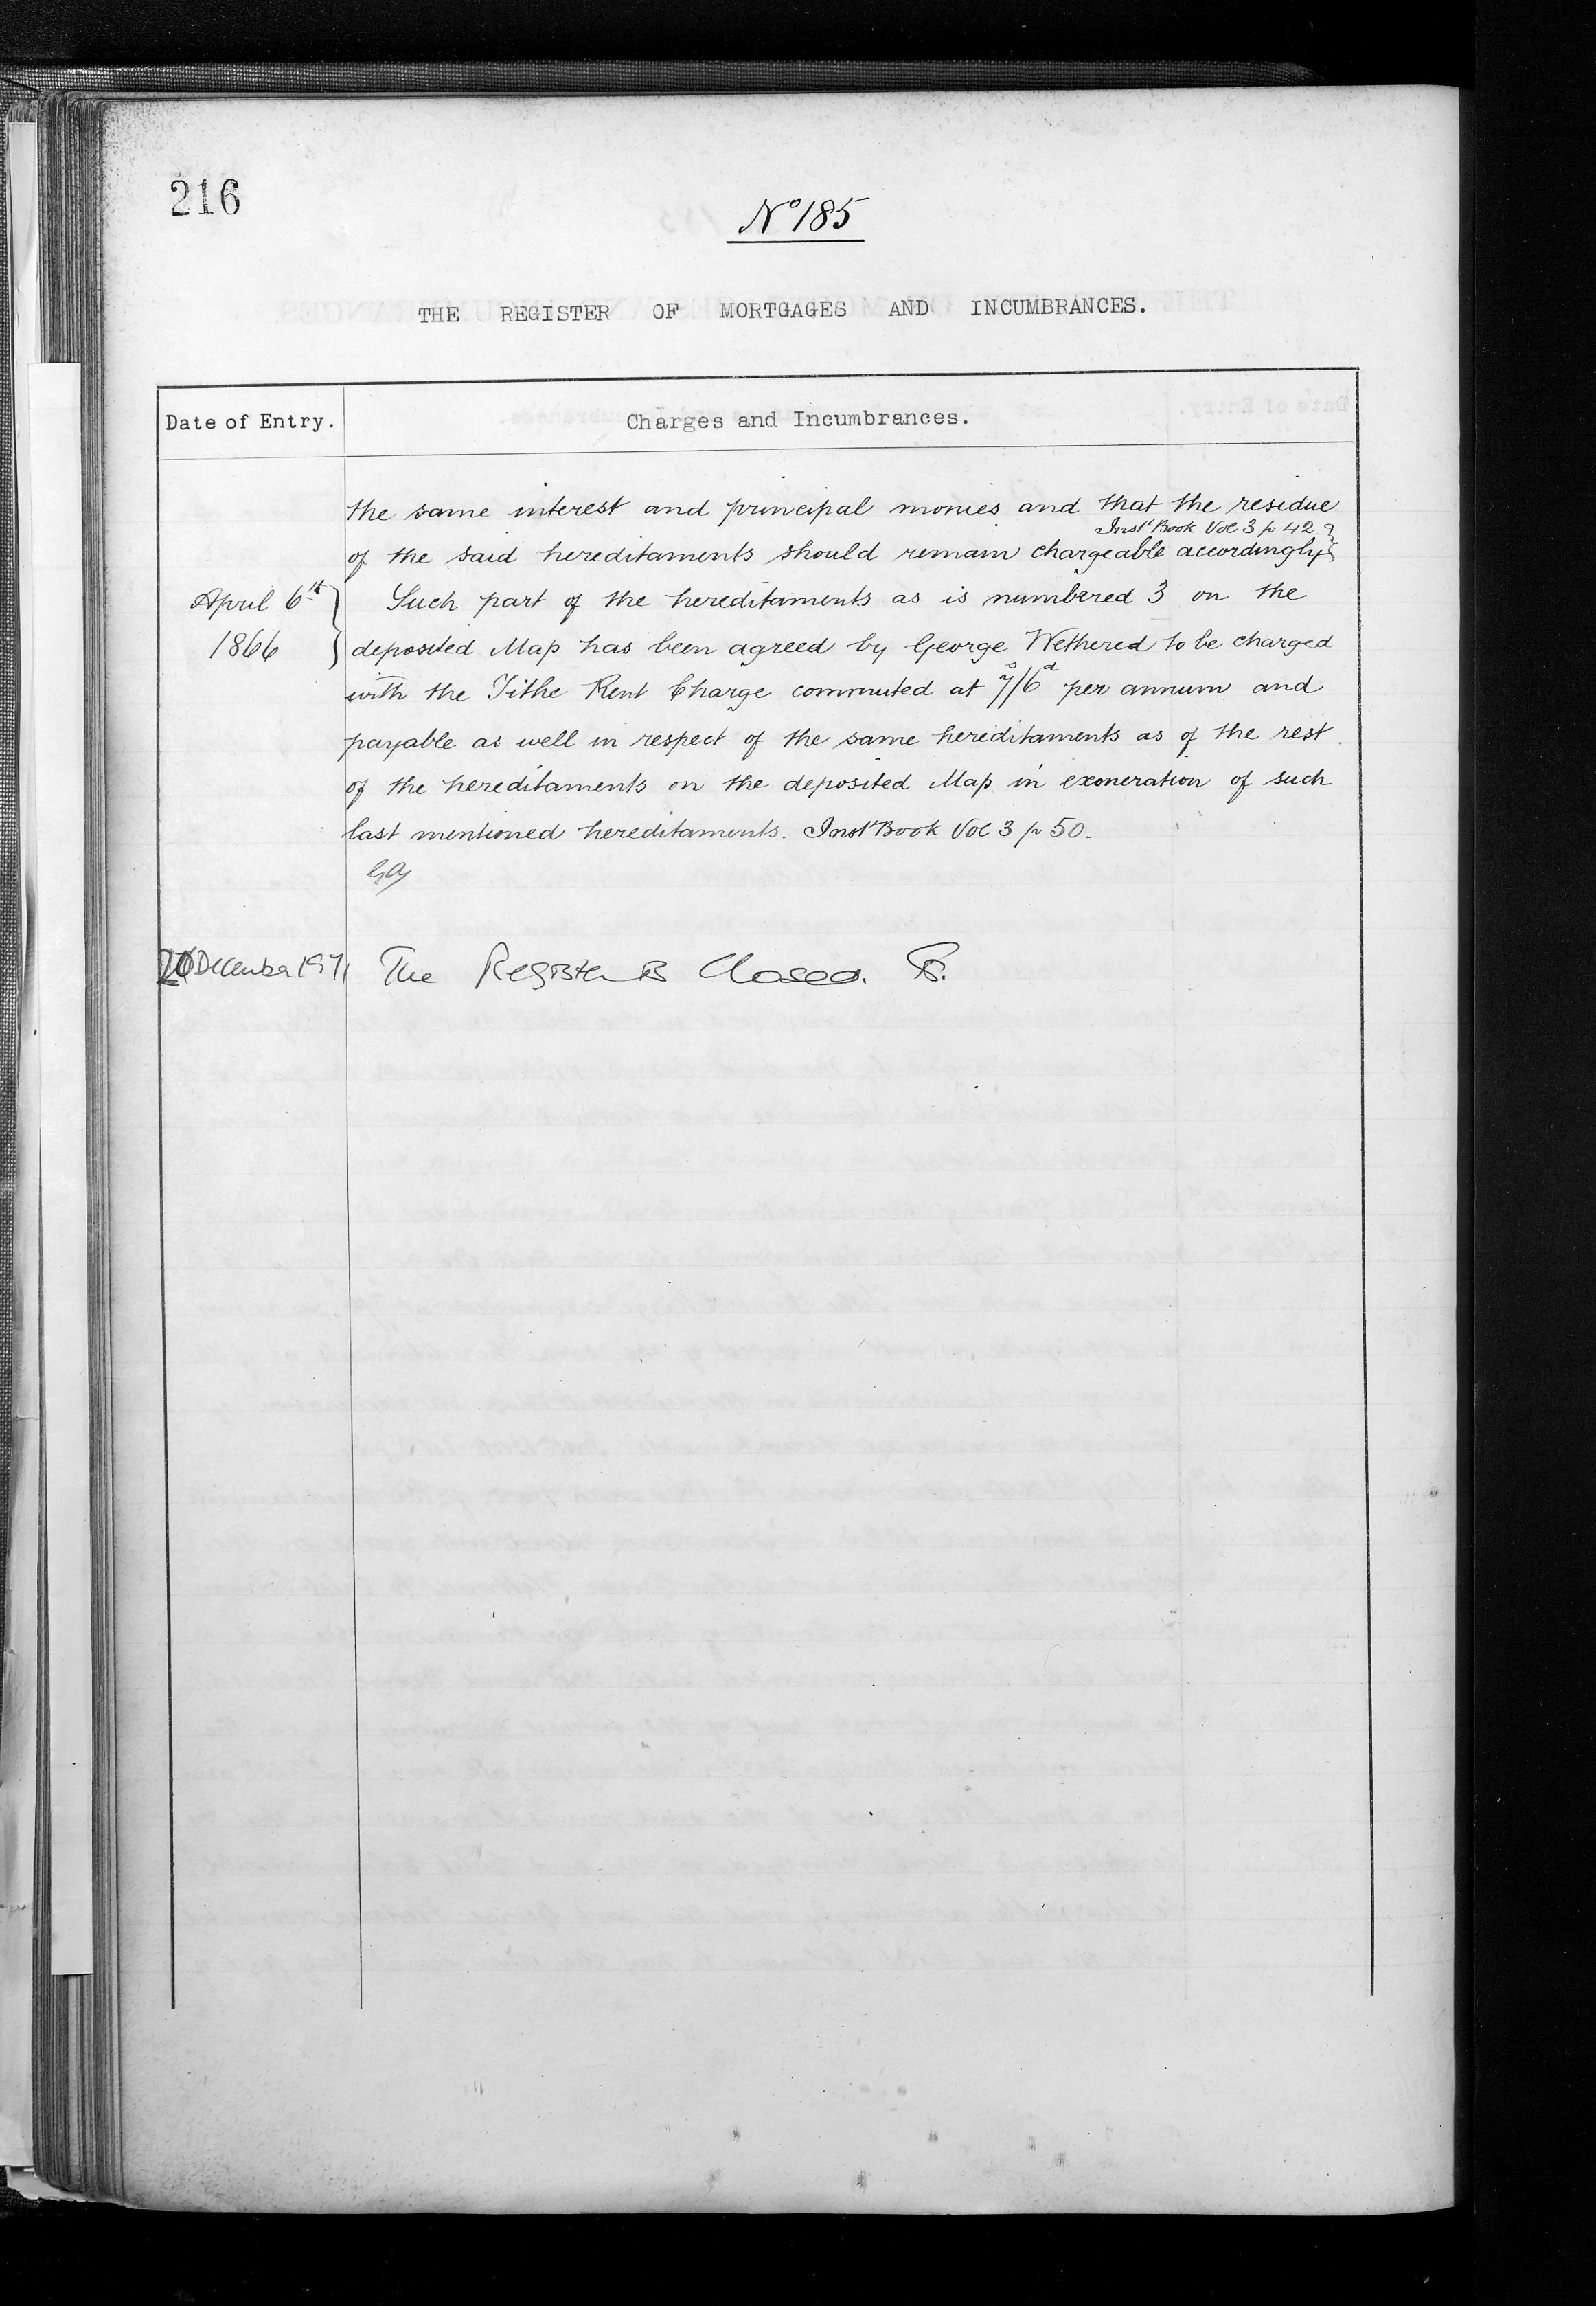 216
No 185
THE REGISTER OF MORTGAGES AND INCUMBRANCES.
Date of Entry.
Charges and Incumbrances.
the same interest and principal monies and that the residue
Inst Book Vol 3 p 42
of the said hereditaments should remain chargeable accordingly
April 6th
1866
Such part of the hereditaments as is numbered 3 on the
deposited Map has been agreed by George Wethered to be charged
with the Tithe Rent Charge commuted at 7s/6d per annum and
payable as well in respect of the same hereditaments as of the rest
of the hereditaments on the deposited Map in exoneration of such
last mentioned hereditaments. Inst Book Vol 3 p 50.
December 1971
The Register is Closed.